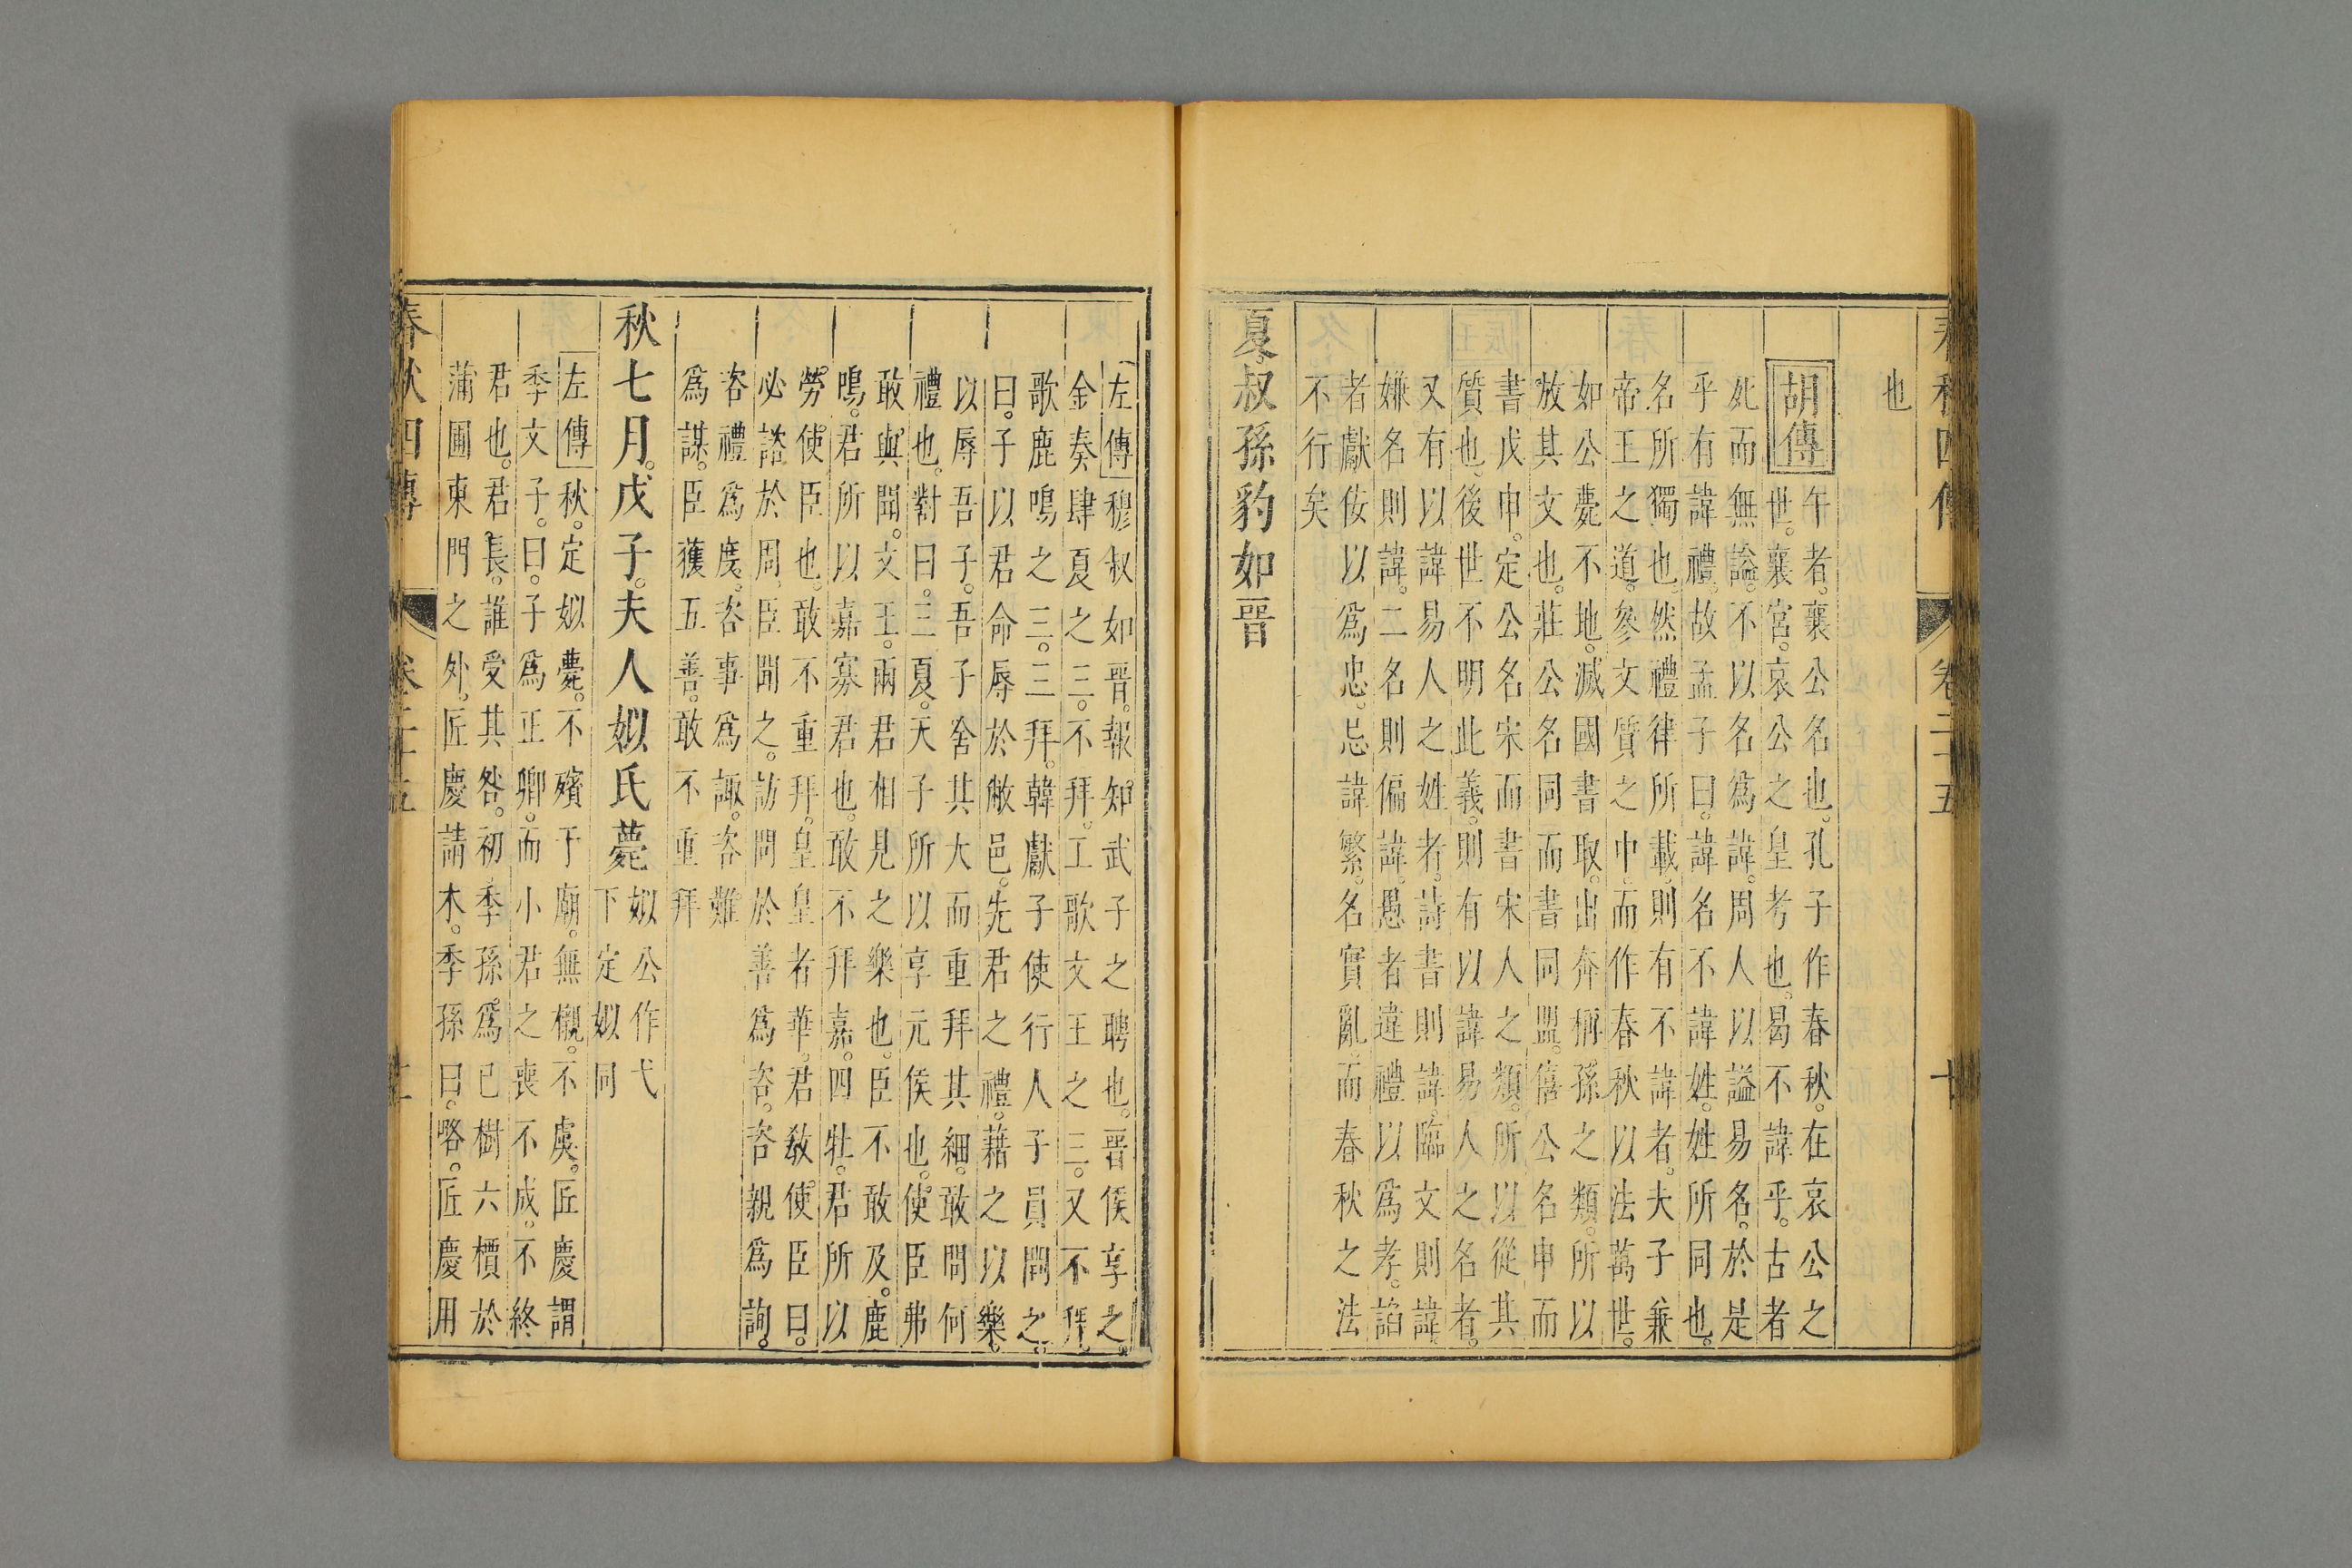 春秋四傳 卷二十五 十
也
胡傳
午者。襄公名也。孔子作春秋。在哀公之
世。襄宮。哀公之皇考也。曷不諱乎。古者
死而無謚。不以名爲諱。周人以謚易名。於是
乎有諱禮。故孟子曰。諱名不諱姓。姓所同也。
名所獨也。然禮律所載。則有不諱者。夫子兼
帝王之道。參文質之中。而作春秋以法萬世。
如公薨不地。滅國書取。出奔稱孫之類。所以
放其文也。莊公名同而書同盟。僖公名申而
書戊申。定公名宋而書宋人之類。所以從其
質也。後世不明此義。則有以諱易人之名者。
又有以諱易人之姓者。詩書則諱。臨文則諱。
嫌名則諱。二名則偏諱。愚者違禮以爲孝。諂
者獻佞以爲忠。忌諱繁。名實亂。而春秋之法
不行矣
夏。叔孫豹如晉
左傳穆叔如晉。報知武子之聘也。晉侯享之。
金奏肆夏之三。不拜。工歌文王之三。又不拜。
歌鹿鳴之三。三拜。韓獻子使行人子員問之。
曰。子以君命辱於敝邑。先君之禮。藉之以樂。
以辱吾子。吾子舍其大而重拜其細。敢問何
禮也。對曰。三夏。天子所以享元侯也。使臣弗
敢與聞。文王。兩君相見之樂也。臣不敢及。鹿
鳴。君所以嘉寡君也。敢不拜嘉。四牡。君所以
勞使臣也。敢不重拜。皇皇者華。君敎使臣曰。
必諮於周。臣聞之。訪問於善爲咨。咨親爲詢。
咨禮爲度。咨事爲諏。咨難
爲謀。臣獲五善。敢不重拜
秋七月。戊子。夫人姒氏薨
姒公作弋
下定姒同
左傳秋。定姒薨。不殯于廟。無櫬。不虞。匠慶謂
季文子。曰。子爲正卿。而小君之喪不成。不終
君也。君長。誰受其咎。初季孫爲已樹六檟於
蒲圃東門之外。匠慶請木。季孫曰。略。匠慶用
春秋四傳 卷二十五